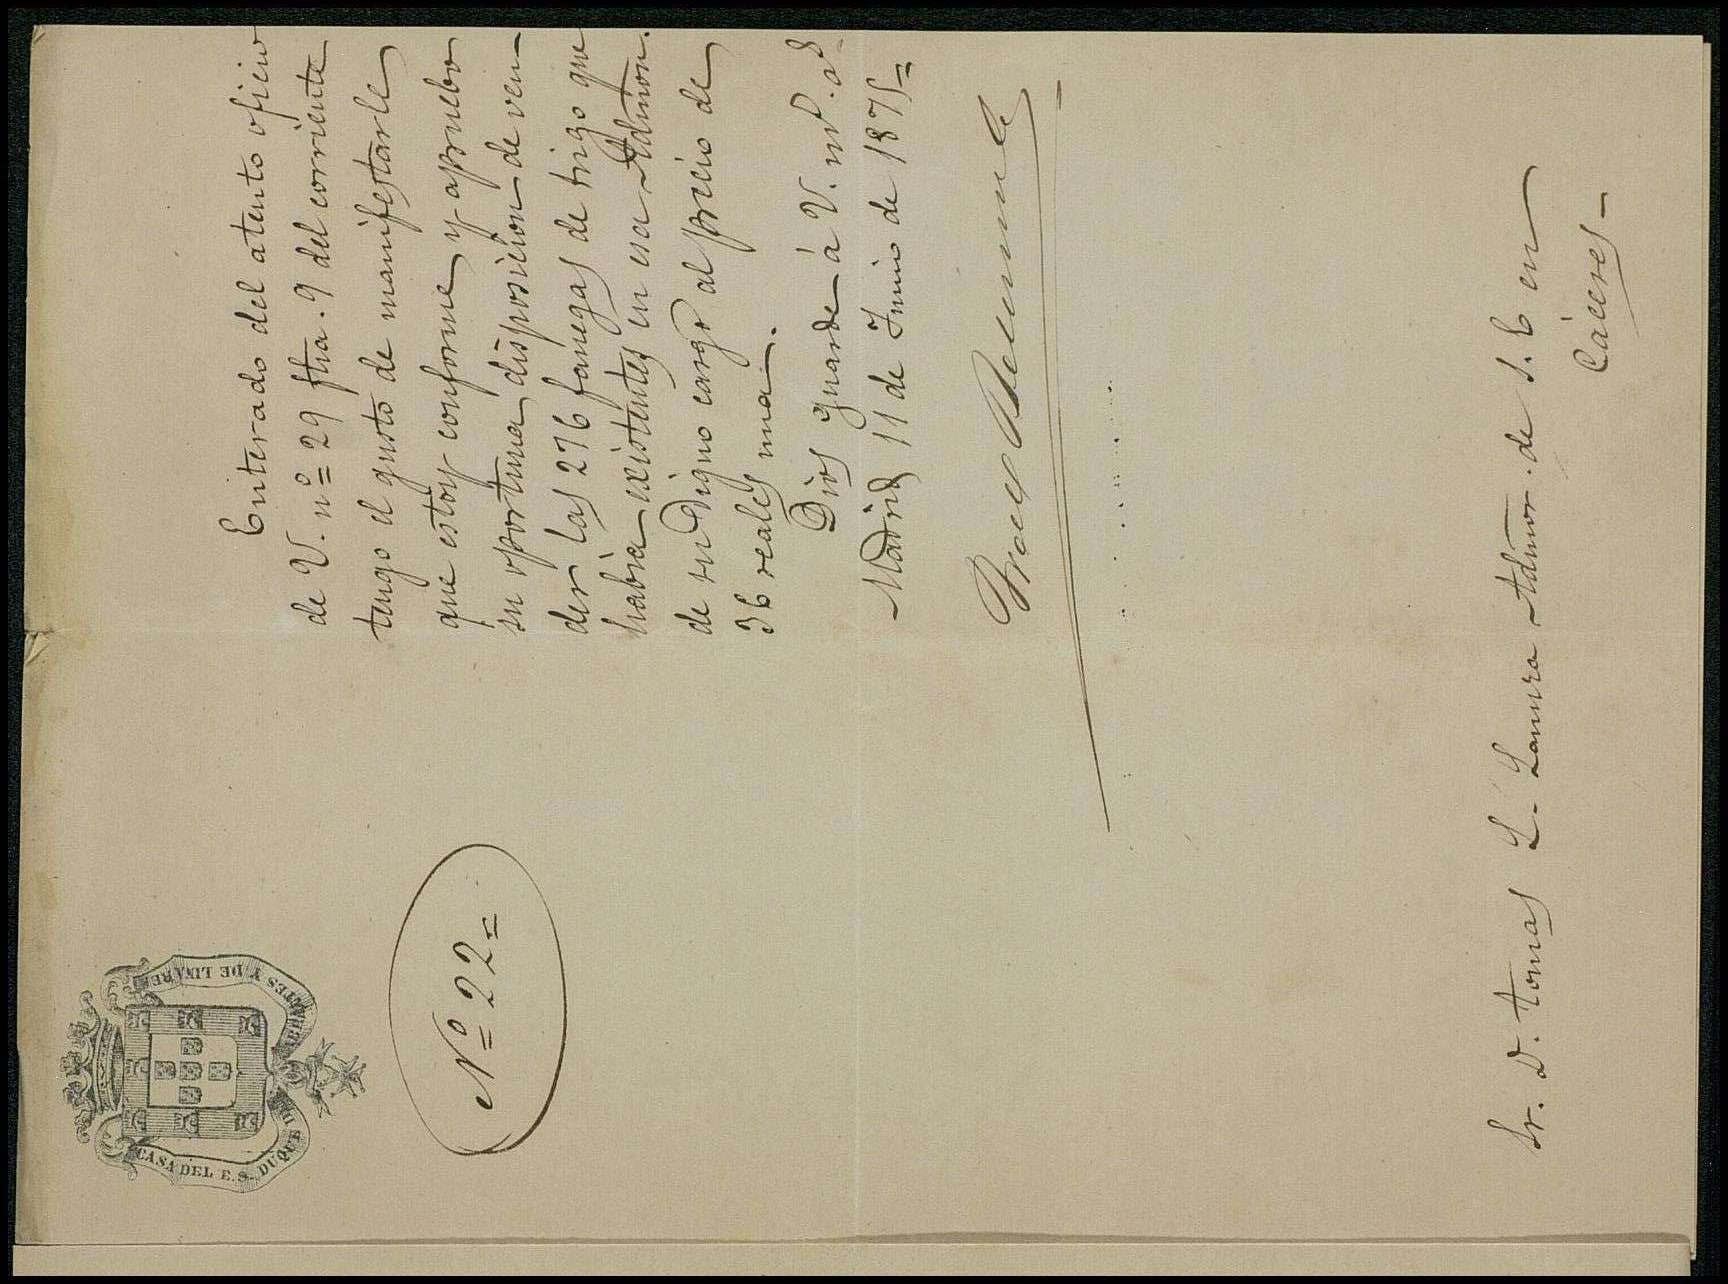 CASA DEL E. S. DUQUE DE ABRANTES Y DE LINARES
Nº 22=
Enterado del atento oficio
de V. nº 29 fha. 9 del corriente
tengo el gusto de manifestarle
que estoy conforme y apruebo
su oportuna disposicion de ven-
der las 276 fanegas de trigo que
habia existentes en esa Admon.
de su digno cargo al precio de
36 reales una.
Dios guarde á V. ms. as.
Madrid 11 de Junio de 1875=
Sr. D. Tomas L. Admor. de S. E. en
Cáceres-